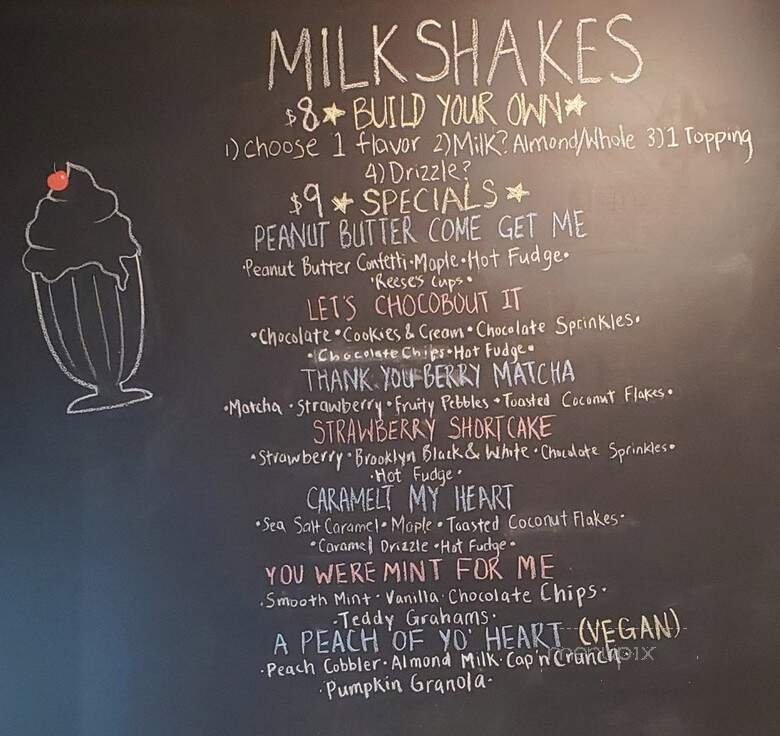 MILKSHAKES
$8 ★ BUILD YOUR OWN ★
1) Choose 1 flavor 2) Milk? Almond/Whole 3) 1 Topping
4) Drizzle?
$9 ★ SPECIALS ★
PEANUT BUTTER COME GET ME
•Peanut Butter Confetti•Maple•Hot Fudge•
•Reese's Cups•
LET'S CHOCOBOUT IT
•Chocolate•Cookies & Cream•Chocolate Sprinkles•
•Chocolate Chips•Hot Fudge•
THANK YOU BERRY MATCHA
•Matcha•Strawberry•Fruity Pebbles•Toasted Coconut Flakes•
STRAWBERRY SHORTCAKE
•Strawberry•Brooklyn Black & White•Chocolate Sprinkles•
•Hot Fudge•
CARAMELT MY HEART
•Sea Salt Caramel•Maple•Toasted Coconut Flakes•
•Caramel Drizzle•Hot Fudge•
YOU WERE MINT FOR ME
•Smooth Mint•Vanilla•Chocolate Chips•
•Teddy Grahams•
A PEACH OF YO' HEART (VEGAN)
•Peach Cobbler•Almond Milk•Cap'n Crunch•
menupix
•Pumpkin Granola•